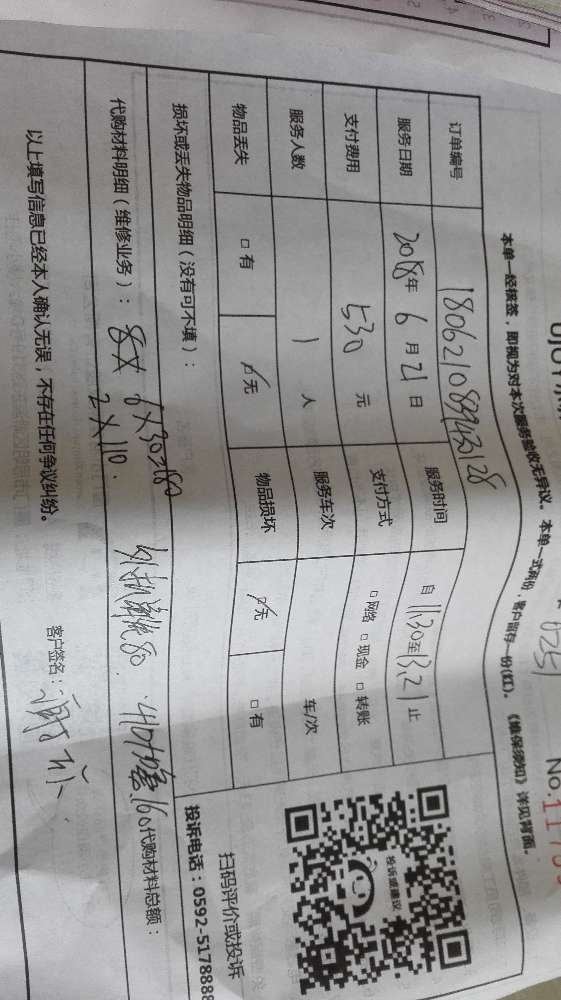 本单一经核签，即视为对本次服务验收无异议。本单一式两份，客户留存一份(红)。《维保须知》详见背面。
订单编号 180621089943128
服务日期 2018年 6 月 21 日 服务时间 自 11:30 至 13:21 止
支付费用 530 元 支付方式 □ 网络 □ 现金 □ 转账
服务人数 1 人 服务车次 车/次
物品丢失 □ 有 □ 无 物品损坏 □ 无 □ 有
损坏或丢失物品明细（没有可不填）：
代购材料明细（维修业务）： 6X30=180
2X110. 代购材料总额：
以上填写信息已经本人确认无误，不存在任何争议纠纷。
客户签名：
投诉或建议
扫码评价或投诉
投诉电话：0592-5178888